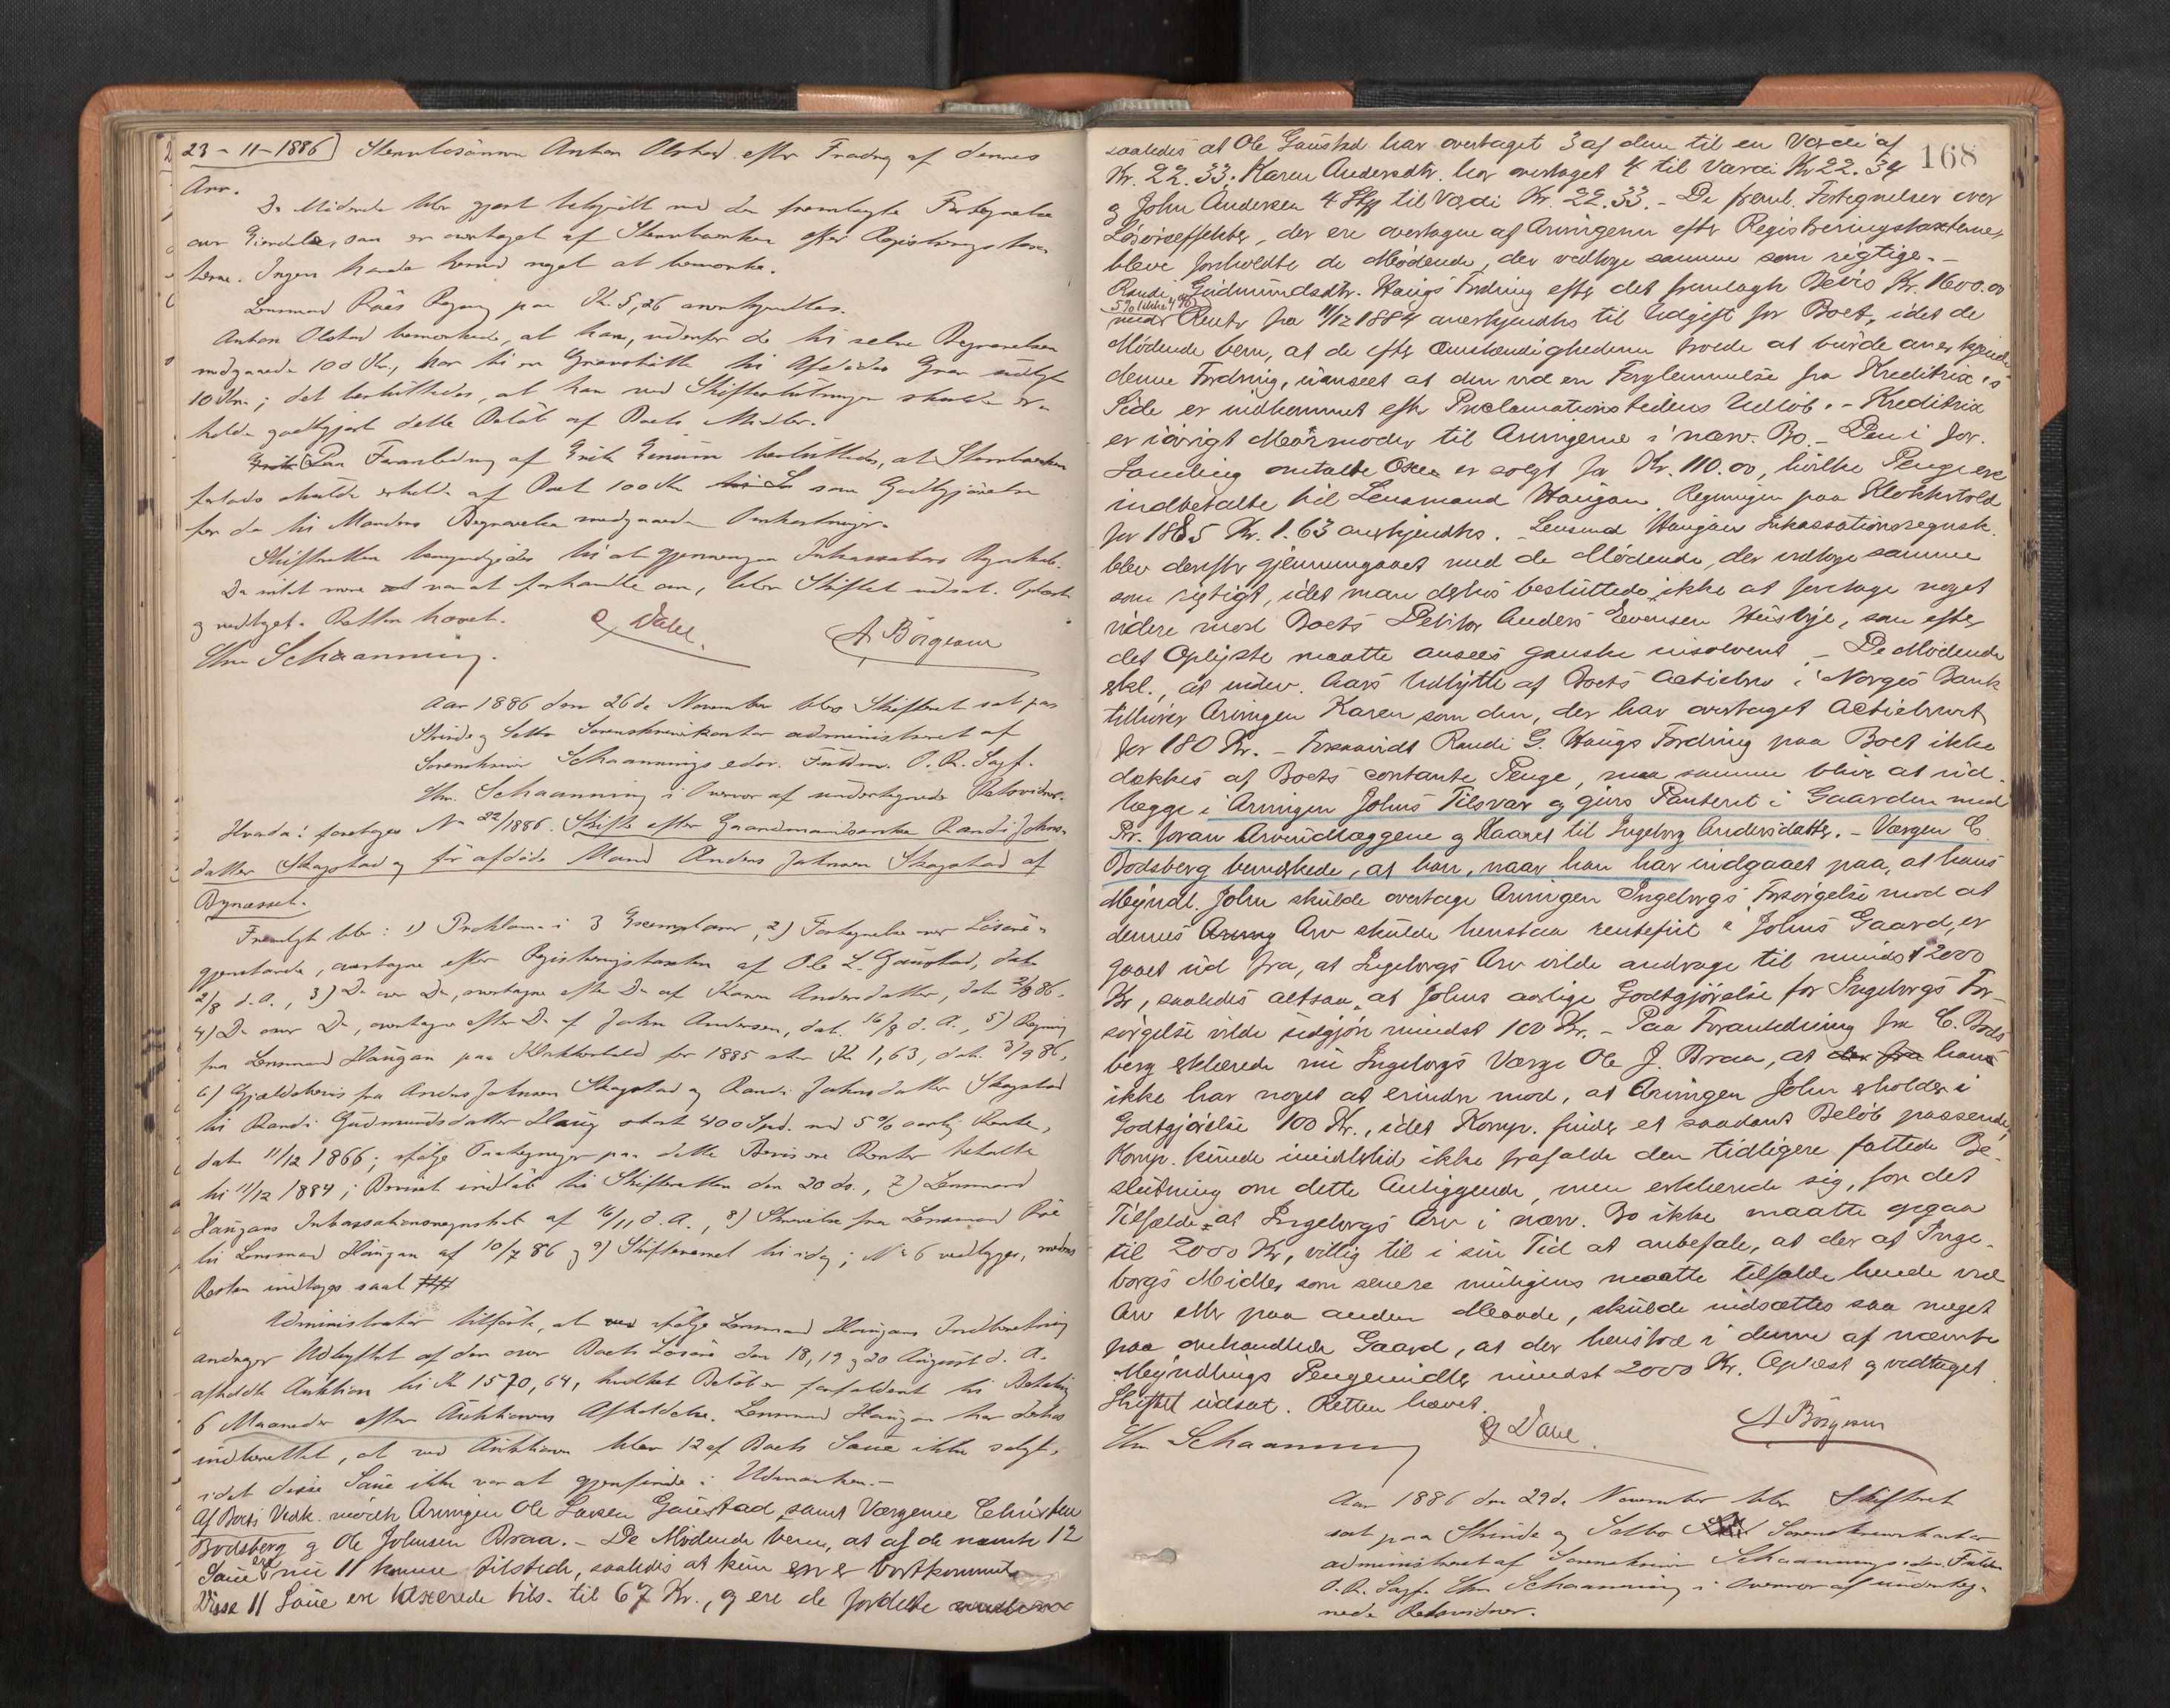 23-11-1886] Stervbosønnen Anton Olstad efter Fradrag af dennes
Arv.
De Mødende blev gjort bekjendt med den fremlagte Fortegnelse
over Eiendele, som er overtaget af Stervboenken efter Registreringstaxten
herne. Ingen havde herved noget at bemærke.
Lensmand Røes Regning paa Kr. 5,26 anerkjendtes.
Anton Olstad bemærkede, at han, udenfor de til selve Begravelsen
medgaaede 100 Kr., har til en Gravstøtte til Afdødes Grav udlagt
10 Kr.; det besluttedes, at han ved Skifteslutningen skulde er-
holde godtgjort dette Beløb af Boets Midler.
Paa Foranledning af Erik Einum besluttedes, at Stervboenken
forlods skulde erholde af Boet 100 Kr. som Godtgjørelse
for de til Mandens Begravelse medgaaede Omkostninger.
Skifteretten bemyndigedes til at gjennemgaa Inkassators Regnskab.
Da intet mere var at forhandle om, blev Skiftet udsat. Oplæst
og vedtaget. Retten hævet.
Chr. Schaanning. O Dahl. A Börgesen
Aar 1886 den 26de November blev Skifteret sat paa
Strinde og Selbo Sorenskriverkontor administreret af
Sorenskriver Schaannings edsv. Fuldm. O. R. Sagf.
Chr. Schaanning i Overvær af undertegnede Retsvidner.
Hvorda: foretoges No 22/1886. Skifte efter Gaardmandsenke Randi Johns-
datter Skagstad og før afdøde Mand Anders Johnsen Skagstad af
Bynæsset.
Fremlagt blev: 1) Proklama i 3 Exemplarer, 2) Fortegnelse over Løsøre-
gjenstande, overtagne efter Registreringstaxten af Ole L. Gaustad, dat.
2/8 d. A., 3) Do over Do, overtagne efter Do af Karen Andersdatter, dat. 2/8 86.
4) Do over Do, overtagne efter Do af John Andersen, dat. 16/8 d. A., 5) Regning
fra Lensmand Haugan paa Klokkertold for 1885 stor Kr. 1,63, dat. 3/9 86,
6) Gjældsbevis fra Anders Johnsen Skagstad og Randi Johnsdatter Skagstad
til Randi Gudmundsdatter Haug stort 400 Spd. med 5 % aarlig Rente,
dat. 11/12 1866; ifølge Paategninger paa dette Bevis ere Renter betalte
til 11/12 1884; Beviset indløb til Skifteretten den 20 ds., 7) Lensmand
Haugans Inkassationsregnskab af 16/11 d. A., 8) Skrivelse fra Lensmand Røe
til Lensmand Haugan af 10/7 86 og 9) Skiftevarsel til idag; No 6 vedlægges, medens
Resten indtages saal. ##
Administrator tilførte, at ifølge Lensmand Haugans Indberetning
andrager Udbyttet af den over Boets Løsøre den 18, 19 og 20 August d. A.
afholdte Auktion til Kr. 1570,64, hvilket Beløb er forfaldent til Betaling
6 Maaneder efter Auktionens Afholdelse. Lensmand Haugan har derhos
indberettet, at ved Auktionen blev 12 af Boets Saue ikke solgt,
idet disse Saue ikke var at gjenfinde i Udmarken.-
Af Boets Vedk. mødte Arvingen Ole Larsen Gaustad samt Værgerne Christen
Bodsberg og Ole Johnsen Braa. - De Mødende bem., at af de nævnte 12
Saue ere nu 11 komne tilstede, saaledes at kun en er bortkommet.
Disse 11 Saue ere taxerede tils. til 67 Kr., og ere de fordelte
168
saaledes at Ole Gaustad har overtaget 3 af dem til en Værdi af
Kr. 22.33. Karen Andersdtr. har overtaget 4 til Værdi Kr 22.34
og John Andersen 4 Stkr til Værdi Kr. 22.33. - De freml. Fortegnelser over
Løsøreeffekter, der ere overtagne af Arvingerne efter Registreringstaxterne,
bleve foreholdte de Mødende, der vedtoge samme som rigtige. -
Randi Gudmundsdtr. Haugs Fordring efter det fremlagte Bevis Kr. 1600.00
5% (ikke 4%)
med Renter fra 11/12 1884 anerkjendtes til Udgift for Boet, idet de
Mødende bem., at de efter Omstændighederne troede at burde anerkjende
denne Fordring, uanseet at den ved en Forglemmelse fra Kreditrix's
Side er indkommet efter Proclamationstidens Udløb. - Kreditrix
er iøvrigt Mormoder til Arvingerne i nærv. Bo. - Den i for.
Samling omtalte Oxe er solgt for Kr. 110.00, hvilke Penge ere
indbetalte til Lensmand Haugan. Regningen paa Klokkertold
for 1885 Kr. 1.63 anerkjendtes. - Lensmd Haugans Inkassationsregnsk.
blev derefter gjennemgaaet med de Mødende, der vedtoge samme
som rigtigt, idet man derhos besluttede ikke at foretage noget
videre mod Boets Debitor Anders Evensen Husbye, som efter
det Oplyste maatte ansees ganske insolvent. - De Mødende
erkl., at indev. Aars Udbytte af Boets Actiebrev i Norges Bank
tilhører Arvingen Karen som den, der har overtaget Actiebrevet
for 180 Kr. - Forsaavidt Randi G. Haugs Fordring paa Boet ikke
dækkes af Boets contante Penge, maa samme blive at ud-
lægge i Arvingen Johns Tilsvar og gives Panteret i Gaarden med
Pr. foran Arveudlæggene og Kaaret til Ingeborg Andersdatter. - Værgen C.
Bodsberg bemærkede, at han, naar han har indgaaet paa, at hans
Myndl. John skulde overtage Arvingen Ingeborgs Forsørgelse mod at
dennes Arv skulde henstaa rentefrit i Johns Gaard, er
gaaet ud fra, at Ingeborgs Arv vilde andrage til mindst 2000
Kr, saaledes altsaa at Johns aarlige Godtgjørelse for Ingeborgs For-
sørgelse vilde udgjøre mindst 100 Kr. - Paa Foranledning fra C. Bods
berg erklærede nu Ingeborgs Værge Ole J. Braa, at han
ikke har noget at erindre mod, at Arvingen John erholder i
Godtgjørelse 100 Kr., idet Komp. finder et saadant Beløb passende,
Komp. kunde imidlertid ikke frafalde den tidligere fattede Be-
slutning om dette Anliggende, men erklærede sig, for det
Tilfælde at Ingeborgs Arv i nærv. Bo ikke maatte opgaa
til 2000 Kr, villig til i sin Tid at anbefale, at der af Inge-
borgs Midler som senere muligens maatte tilfalde hende ved
Arv eller paa anden Maade, skulde indsættes saa meget
paa omhandlede Gaard, at der henstod i denne af nævnte
Myndlings Pengemidler mindst 2000 Kr. Oplæst og vedtaget.
Skiftet udsat. Retten hævet.
Chr. Schaanning O Dahl. A Börgesen
Aar 1886 den 29de November blev Skifteret
sat paa Strinde og Selbo Sorenskriverkontor
administreret af Sorenskriver Schaannings edsv. Fuldm.
O. R. Sagf. Chr. Schaanning i Overvær af underteg-
nede Retsvidner.